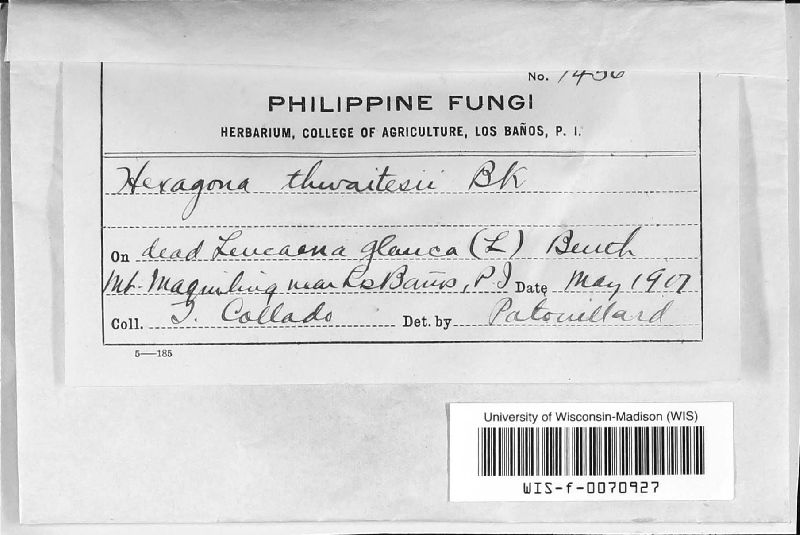 No. 1456
PHILIPPINE FUNGI
HERBARIUM, COLLEGE OF AGRICULTURE, LOS BAÑOS, P. I.
Hexagona thwaitesii Bk
On dead Leucaena glauca (L) Benth
Mt. Maquiling near Los Baños, P I Date May 1917
Coll. T. Collado Det. by Patouillard
5—185
University of Wisconsin-Madison (WIS)
WIS-f-0070927